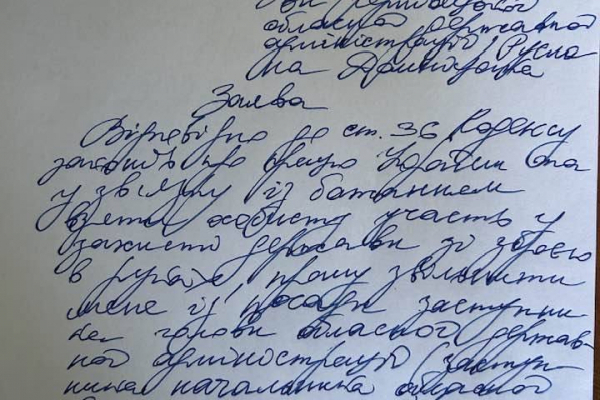 обласної державної
адміністрації Русла
на
Заява
Відповідно до ст. 36 Кодексу
законів про працю України та
у зв'язку із бажанням
взяти особисту участь у
захисті держави зі зброєю
в руках, прошу звільнити
мене із посади заступни
ка голови обласної держав-
ної адміністрації (заступ-
ника начальника обласної